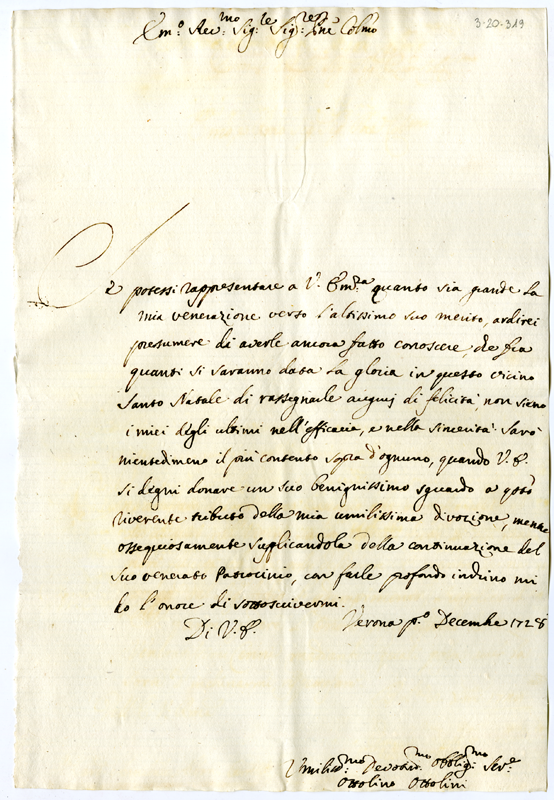 3-20-319
Em.º Rev.mo Sig.re Sig.re P̃ne Colmo
Se potessi rappresentare a V. Em.za quanto sia grande la
mia venerazione verso l'altissimo suo merito, ardirei
presumere di averle ancora fatto conoscere, che fra
quanti si saranno data la gloria in questo vicino
Santo Natale di rassegnarle augurj di felicità, non sieno
i miei degli ultimi nell'efficacia, e nella sincerità. Sarò
nientedimeno il più contento sopra d'ognuno, quando V. E.
si degni donare un suo benignissimo sguardo a q̃sto
riverente tributo della mia umilissima divozione, mentre
ossequiosamente supplicandola della continuazione del
suo venerato Patrocinio, con farle profondo inchino mi
ho l'onore di sottoscrivermi.
Di V. E. Verona p.º Decembre 1728
Umiliss.mo Devotiss.mo Obblig.mo Ser.e
Ottolino Ottolini